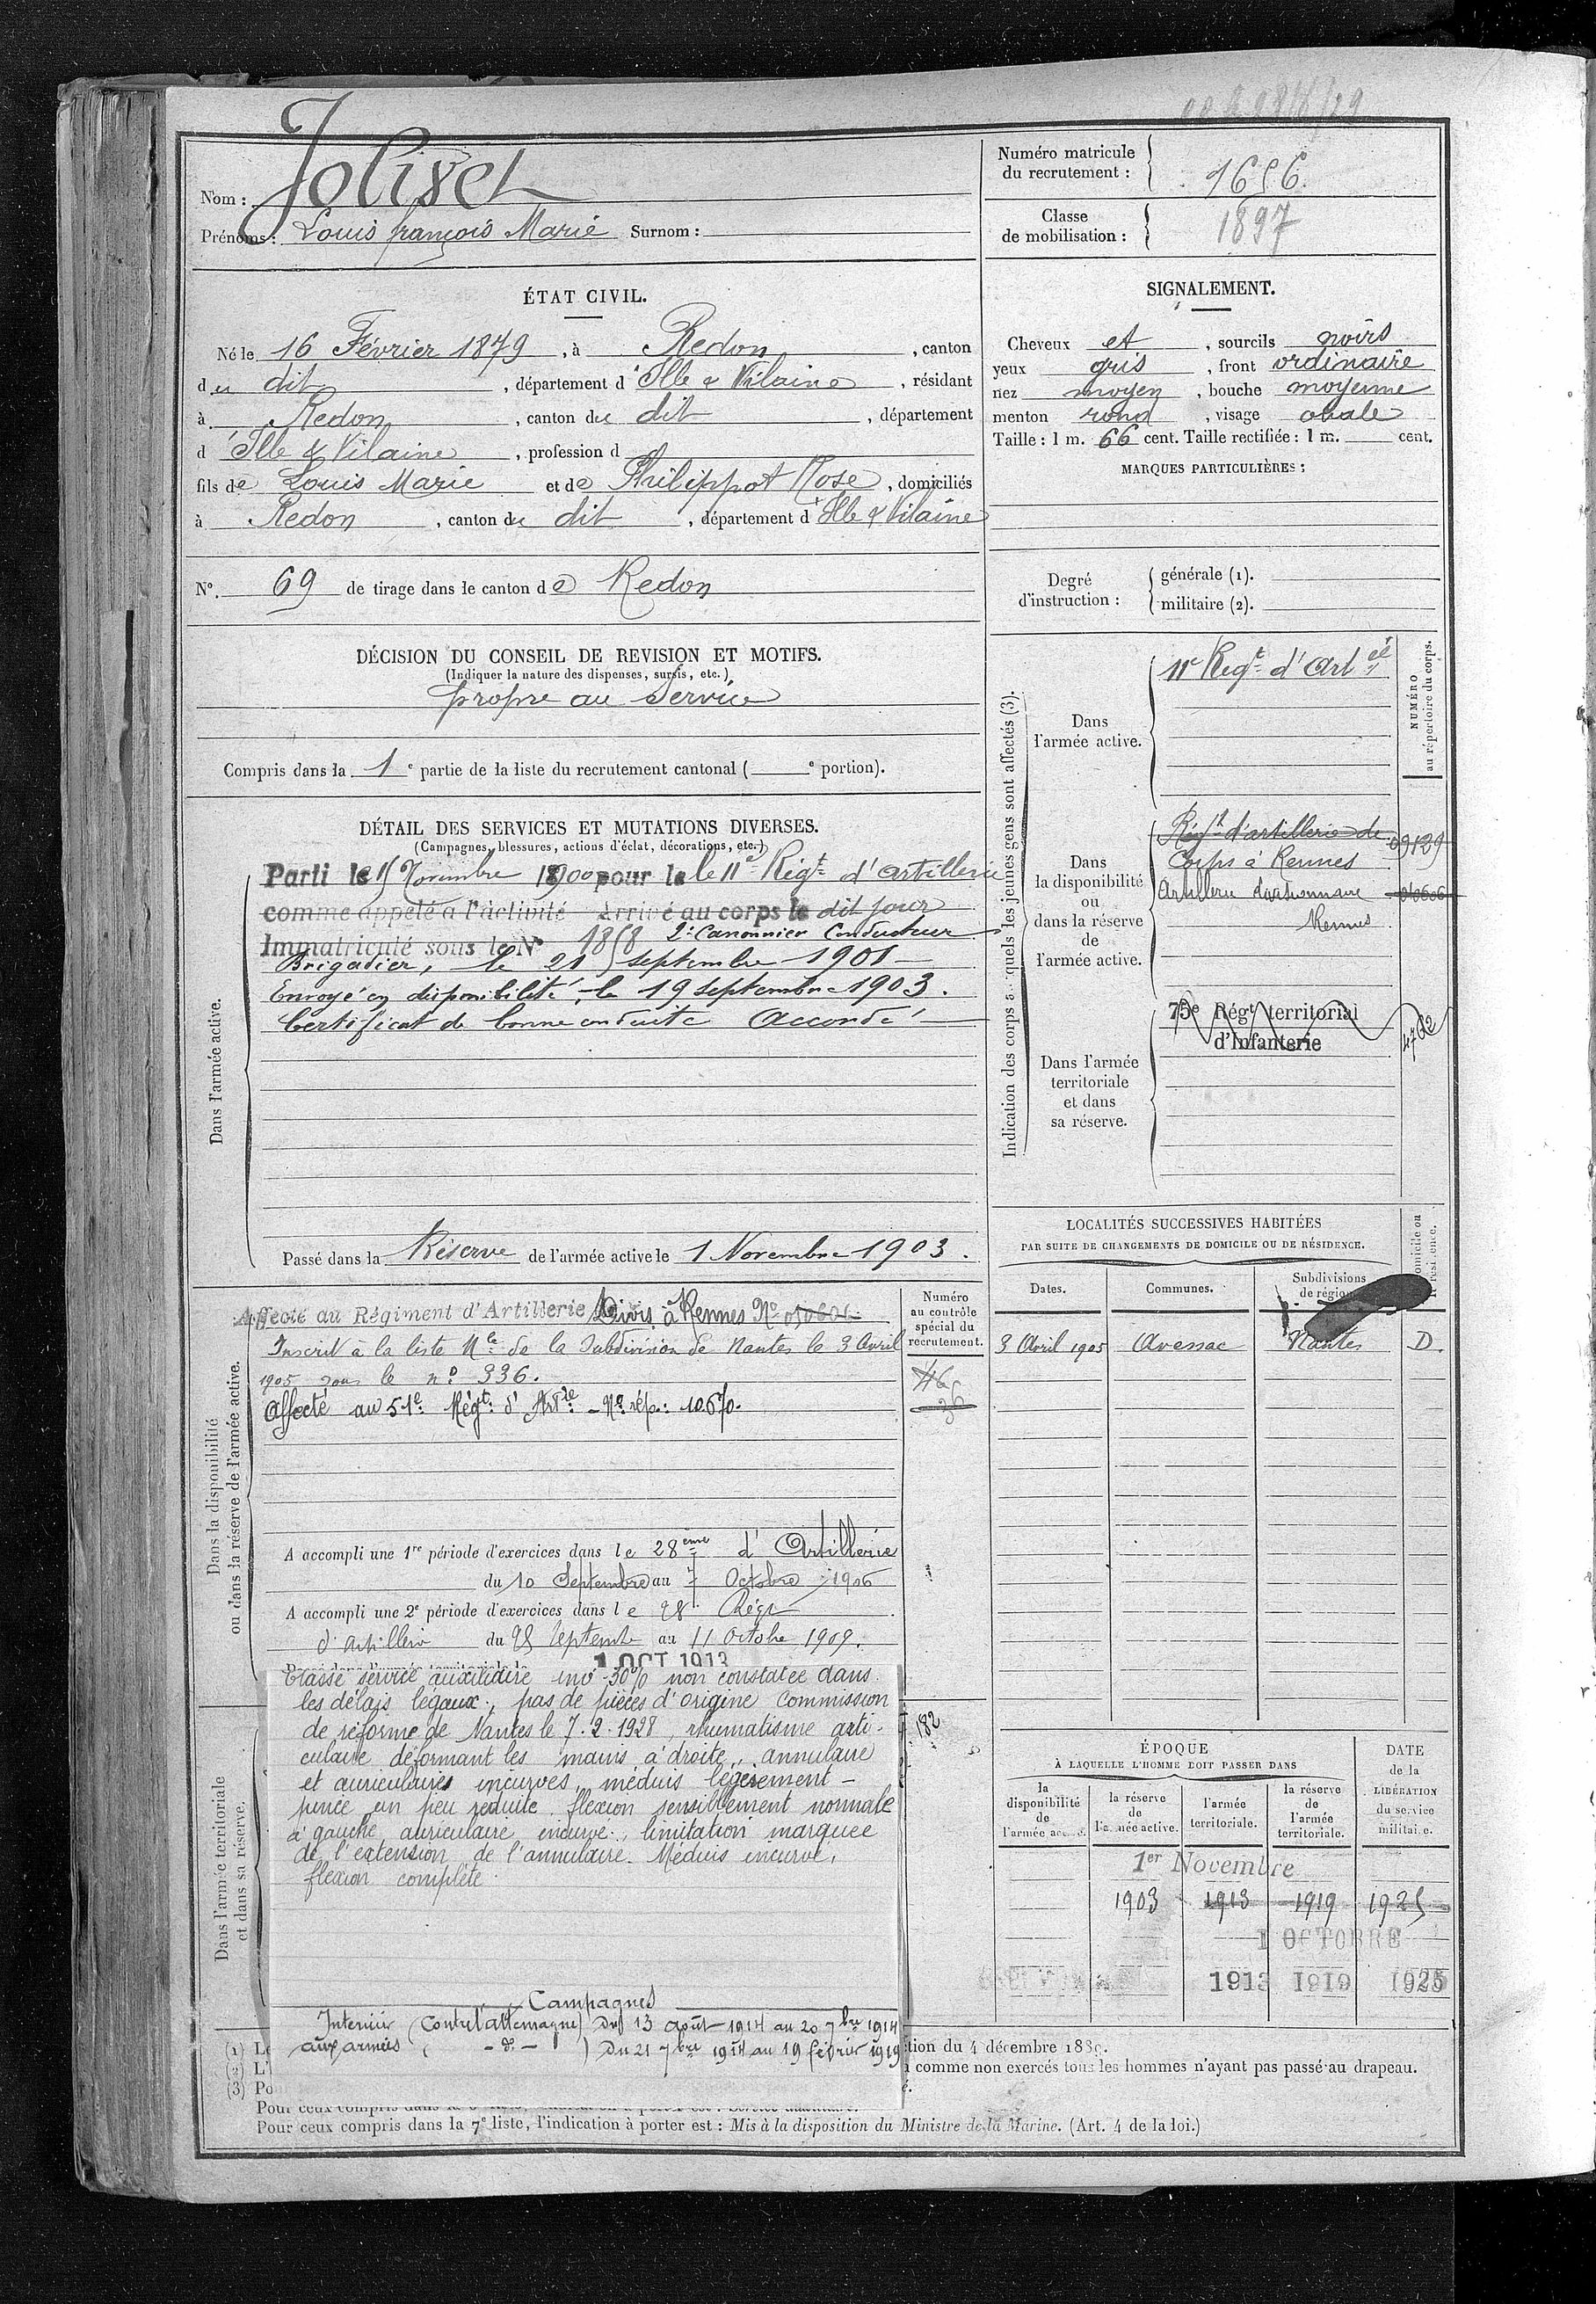 Nom : Jolivet
Prénoms : Louis françois Marie Surnom :
Numéro matricule du recrutement : 1656.
Classe de mobilisation : 1897
ÉTAT CIVIL.
Né le 16 Février 1879, à Redon, canton
du dit, département d'Ille & Vilaine, résidant
à Redon, canton du dit, département
d'Ille & Vilaine, profession d
fils de Louis Marie et de Philippot Rose, domiciliés
à Redon, canton du dit, département d'Ille & Vilaine
N°. 69 de tirage dans le canton de Redon
SIGNALEMENT.
Cheveux et, sourcils noirs
yeux gris, front ordinaire
nez moyen, bouche moyenne
menton rond, visage ovale
Taille : 1 m. 66 cent. Taille rectifiée : 1 m. cent.
MARQUES PARTICULIÈRES :
Degré d'instruction :
générale (1).
militaire (2).
DÉCISION DU CONSEIL DE REVISION ET MOTIFS.
(Indiquer la nature des dispenses, sursis, etc.)
propre au service
Compris dans la 1e partie de la liste du recrutement cantonal ( e portion).
DÉTAIL DES SERVICES ET MUTATIONS DIVERSES.
(Campagnes, blessures, actions d'éclat, décorations, etc.)
Dans l'armée active.
Parti le 15 Novembre 1900 pour le le 11e Régt d'artillerie
comme appelé à l'activité Arrivé au corps le dit jour
Immatriculé sous le N° 1858 2e Canonnier Conducteur
Brigadier, le 21 septembre 1901
Envoyé en disponibilité, le 19 septembre 1903.
Certificat de bonne conduite Accordé
Passé dans la Réserve de l'armée active le 1 Novembre 1903.
Indication des corps quels les jeunes gens sont affectés (3).
NUMÉRO au répertoire du corps.
Dans l'armée active.
11e Régt d'Artie
Dans la disponibilité ou dans la réserve de l'armée active.
Régt d'artillerie de
Corps à Rennes 09129
Artillerie divisionnaire
Rennes
Dans l'armée territoriale et dans sa réserve.
75e Régt territorial
d'Infanterie 4762
LOCALITÉS SUCCESSIVES HABITÉES
PAR SUITE DE CHANGEMENTS DE DOMICILE OU DE RÉSIDENCE.
Dates. Communes. Subdivisions de région
3 Avril 1905 Avessac Nantes D.
Dans la disponibilité ou dans la réserve de l'armée active.
Numéro au contrôle spécial du recrutement.
Affecté au Régiment d'Artillerie Divis. à Rennes No
Inscrit à la liste Mle de la Subdivision de Nantes le 3 Avril
1905 sous le no 336.
Affecté au 51e Régt d'Artie - No rép : 10670.
A accompli une 1re période d'exercices dans le 28ème d'Artillerie
du 10 Septembre au 7 Octobre 1906
A accompli une 2e période d'exercices dans le 28e Régt
d'artillerie du 25 Septembre au 11 Octobre 1909.
1 OCT 1913
Dans l'armée territoriale et dans sa réserve.
Classé service auxiliaire inv -30% non constatée dans
les délais légaux., pas de pièces d'origine Commission
de réforme de Nantes le 7.2.1928, rhumatisme arti-
culaire déformant les mains à droite, annulaire
et auriculaires incurvés, médius légèrement -
pince un peu réduite. flexion sensiblement normale
à gauche, auriculaire incurvé., limitation marquée
de l'extension de l'annulaire. Médius incurvé,
flexion complète.
182
Campagnes
Intérieur (Contre l'Allemagne) Du 13 août 1914 au 20 7bre 1914
aux armées ( -do- ) Du 21 7bre 1914 au 19 février 1919
ÉPOQUE
À LAQUELLE L'HOMME DOIT PASSER DANS
DATE de la LIBÉRATION du service militaire.
la disponibilité de l'armée active.
la réserve de l'armée active.
l'armée territoriale.
la réserve de l'armée territoriale.
1er Novembre
1903 1913 1919 1925
1 OCTOBRE
1913 1919 1925
tion du 4 décembre 1889.
comme non exercés tous les hommes n'ayant pas passé au drapeau.
(1) L
(2) L'
(3) Po
Pour ceux compris dans la
Pour ceux compris dans la 7e liste, l'indication à porter est : Mis à la disposition du Ministre de la Marine. (Art. 4 de la loi.)